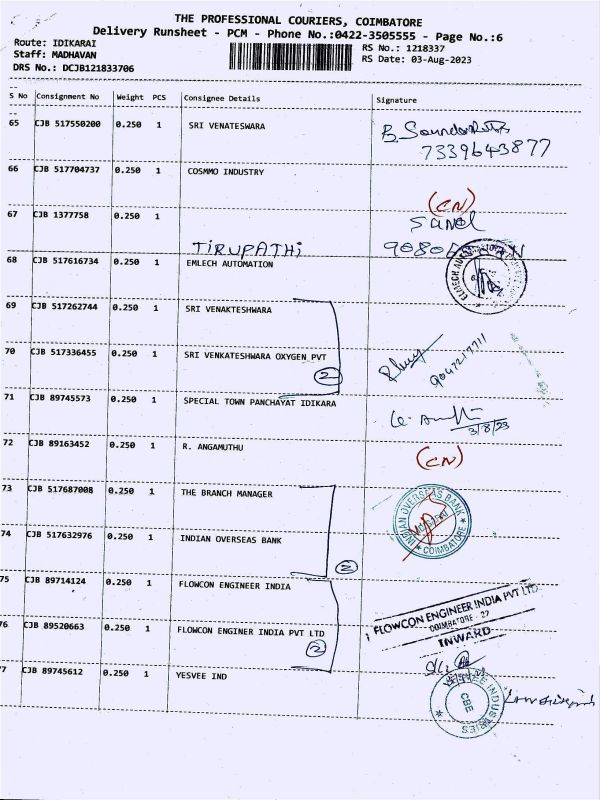 THE PROFESSIONAL COURIERS, COIMBATORE
Delivery Runsheet - PCM - Phone No.:0422-3505555 - Page No.:6
Route: IDIKARAI
RS No.: 1218337
Staff: MADHAVAN
RS Date: 03-Aug-2023
DRS No.: DCJB121833706
S No Consignment No Weight PCS Consignee Details Signature
65 CJB 517550200 0.250 1 SRI VENATESWARA
7339643877
66 CJB 517704737 0.250 1 COSMMO INDUSTRY (CN)
67 CJB 1377758 0.250 1
TIRUPATHi
68 CJB 517616734 0.250 1 EMLECH AUTOMATION
69 CJB 517262744 0.250 1 SRI VENAKTESHWARA
70 CJB 517336455 0.250 1 SRI VENKATESHWARA OXYGEN PVT
2
71 CJB 89745573 0.250 1 SPECIAL TOWN PANCHAYAT IDIKARA
3/8/23
72 CJB 89163452 0.250 1 R. ANGAMUTHU (CN)
73 CJB 517687008 0.250 1 THE BRANCH MANAGER
INDIAN OVERSEAS BANK
COIMBATORE
74 CJB 517632976 0.250 1 INDIAN OVERSEAS BANK
2
75 CJB 89714124 0.250 1 FLOWCON ENGINEER INDIA
FLOWCON ENGINEER INDIA PVT LTD
COIMBATORE - 27
INWARD
76 CJB 89520663 0.250 1 FLOWCON ENGINER INDIA PVT LTD
2
77 CJB 89745612 0.250 1 YESVEE IND
INDUSTRIES
CBE